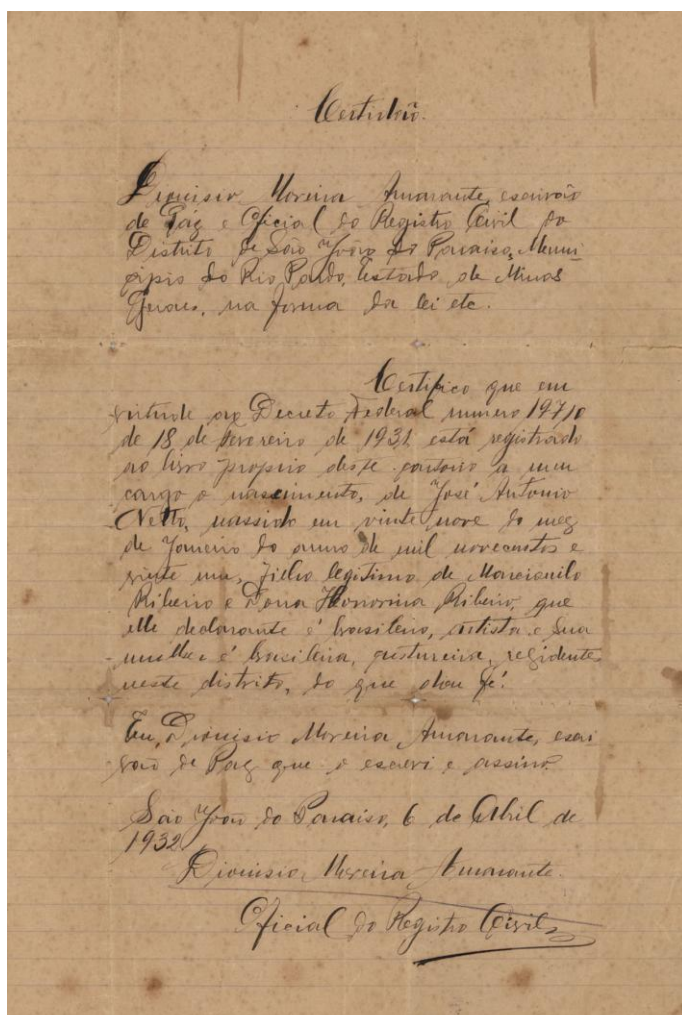 Certidão.
Dionisio Moreira Amarante, escrivão
de Paz e Oficial do Registro Civil do
Distrito de São João do Paraiso, Muni
cipio do Rio Pardo, Estado de Minas
Geraes, na forma da lei etc.
Certifico que em
virtude ao Decreto Federal numero 19710
de 18 de Fevereiro de 1931, está registrado
no livro proprio deste cartorio a meu
cargo o nascimento, de José Antonio
Netto, nassido em vinte nove do mez
de Janeiro do anno de mil novecentos e
vinte um, filho legitimo de
Ribeiro e Dona Honorina Ribeiro, que
elle declarante é brasileiro, artista e sua
mulher é brasileira, custureira, rezidentes
neste distrito, do que dou fé.
Eu, Dionisio Moreira Amarante, escri
vão de Paz que o escrevi e assino.
São João do Paraiso, 6 de Abril de
1932
Dionisio Moreira Amarante.
Oficial do Registro Civil